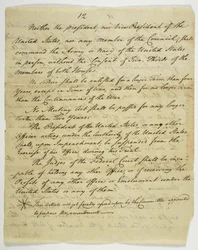 12
Neither the president, nor Vice President of the
United States, nor any member of the Council, shall
command the Army or Navy of the United States
in person without the Consent of Two Thirds of the
members of both Houses.
No Soldier shall be enlisted for a longer term than four
Years except in Time of War, and then for no longer term
than the continuance of the War.
No Mutiny Act shall be passed for any longer
term than two Years.
The President of the United States, or any other
Officer acting under the Authority of the United States
shall upon Impeachment be suspended from the
Exercise of his Office during his Trial.
The Judges of the Federal Court shall be inca-
pable of holding any other Office, or of receiving the
Profits of any other Office or Emolument under the
United States or any of them.